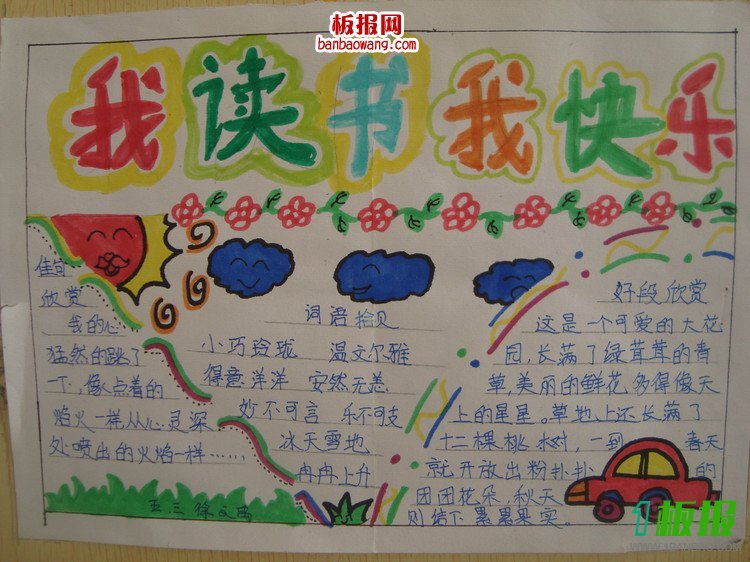 板报网
banbaowang.com
我读书我快乐
佳句
欣赏
我的心
猛然的跳了
一下,像点着的
焰火一样从心灵深
处喷出的火焰一样……
词语拾贝
小巧玲珑 温文尔雅
得意洋洋 安然无恙
妙不可言 乐不可支
冰天雪地
冉冉上升
好段欣赏
这是一个可爱的大花
园,长满了绿茸茸的青
草,美丽的鲜花多得像天
上的星星。草地上还长满了
十二棵桃树,一到春天
就开放出粉扑扑的
团团花朵,秋天
则结下累累果实。
五三徐文
1板报